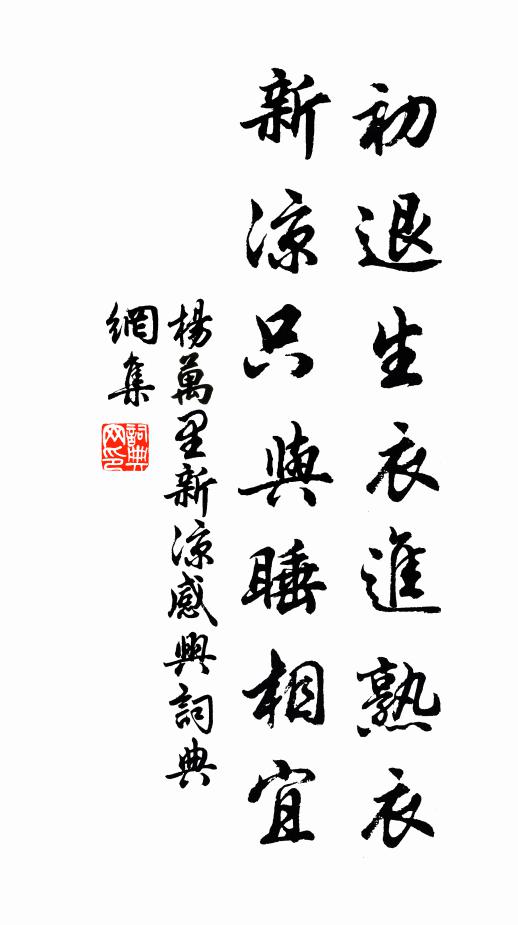 初退生衣進熟衣
新涼只與睡相宜
楊萬里新涼感興詞典
網集
詞典
网印